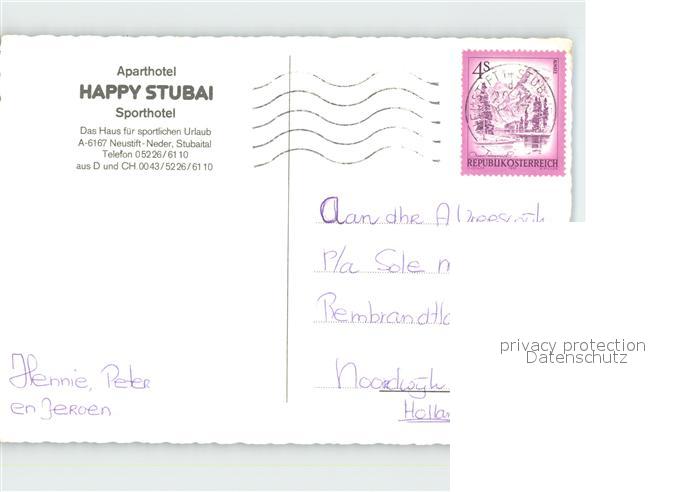 Aparthotel
HAPPY STUBAI
Sporthotel
Das Haus für sportlichen Urlaub
A-6167 Neustift-Neder, Stubaital
Telefon 05226/61 10
aus D und CH 0043/5226/61 10
4S
REPUBLIK ÖSTERREICH
Aan dhr A
P/a Sole
Rembrandtla
Noordwijk
Hollan
Hennie, Peter
en Jeroen
privacy protection
Datenschutz